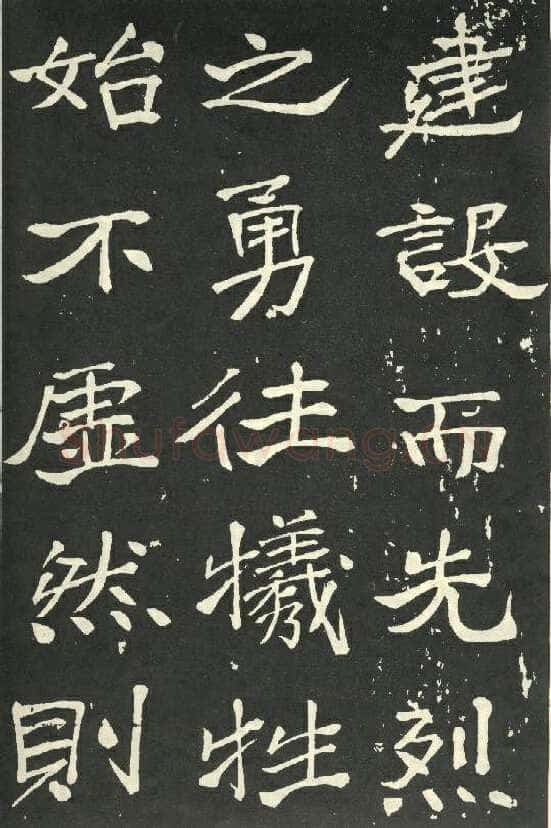 建設而先烈
之勇往犧牲
始不虛然則